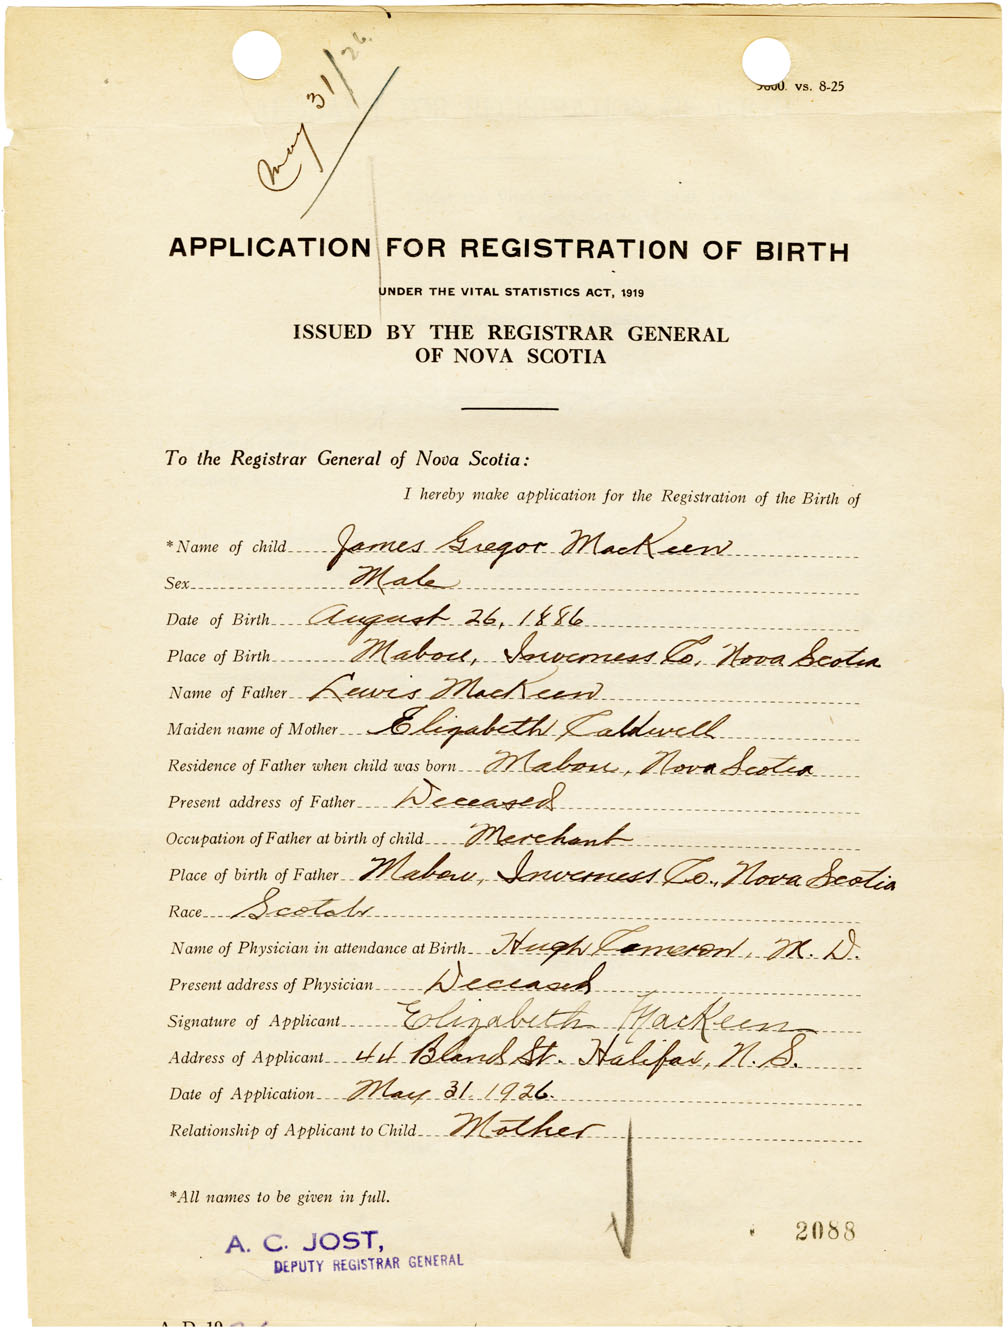 May 31/26.
vs. 8-25
APPLICATION FOR REGISTRATION OF BIRTH
UNDER THE VITAL STATISTICS ACT, 1919
ISSUED BY THE REGISTRAR GENERAL
OF NOVA SCOTIA
To the Registrar General of Nova Scotia:
I hereby make application for the Registration of the Birth of
*Name of child James Gregor MacKeen
Sex Male
Date of Birth August 26, 1886
Place of Birth Mabou, Inverness Co, Nova Scotia
Name of Father Lewis MacKeen
Maiden name of Mother Elizabeth Caldwell
Residence of Father when child was born Mabou, Nova Scotia
Present address of Father Deceased
Occupation of Father at birth of child Merchant
Place of birth of Father Mabou, Inverness Co., Nova Scotia
Race Scotch
Name of Physician in attendance at Birth Hugh Cameron, M. D.
Present address of Physician Deceased
Signature of Applicant Elizabeth MacKeen
Address of Applicant 44 Bland St. Halifax, N. S.
Date of Application May 31. 1926.
Relationship of Applicant to Child Mother
*All names to be given in full.
2088
A. C. JOST,
DEPUTY REGISTRAR GENERAL